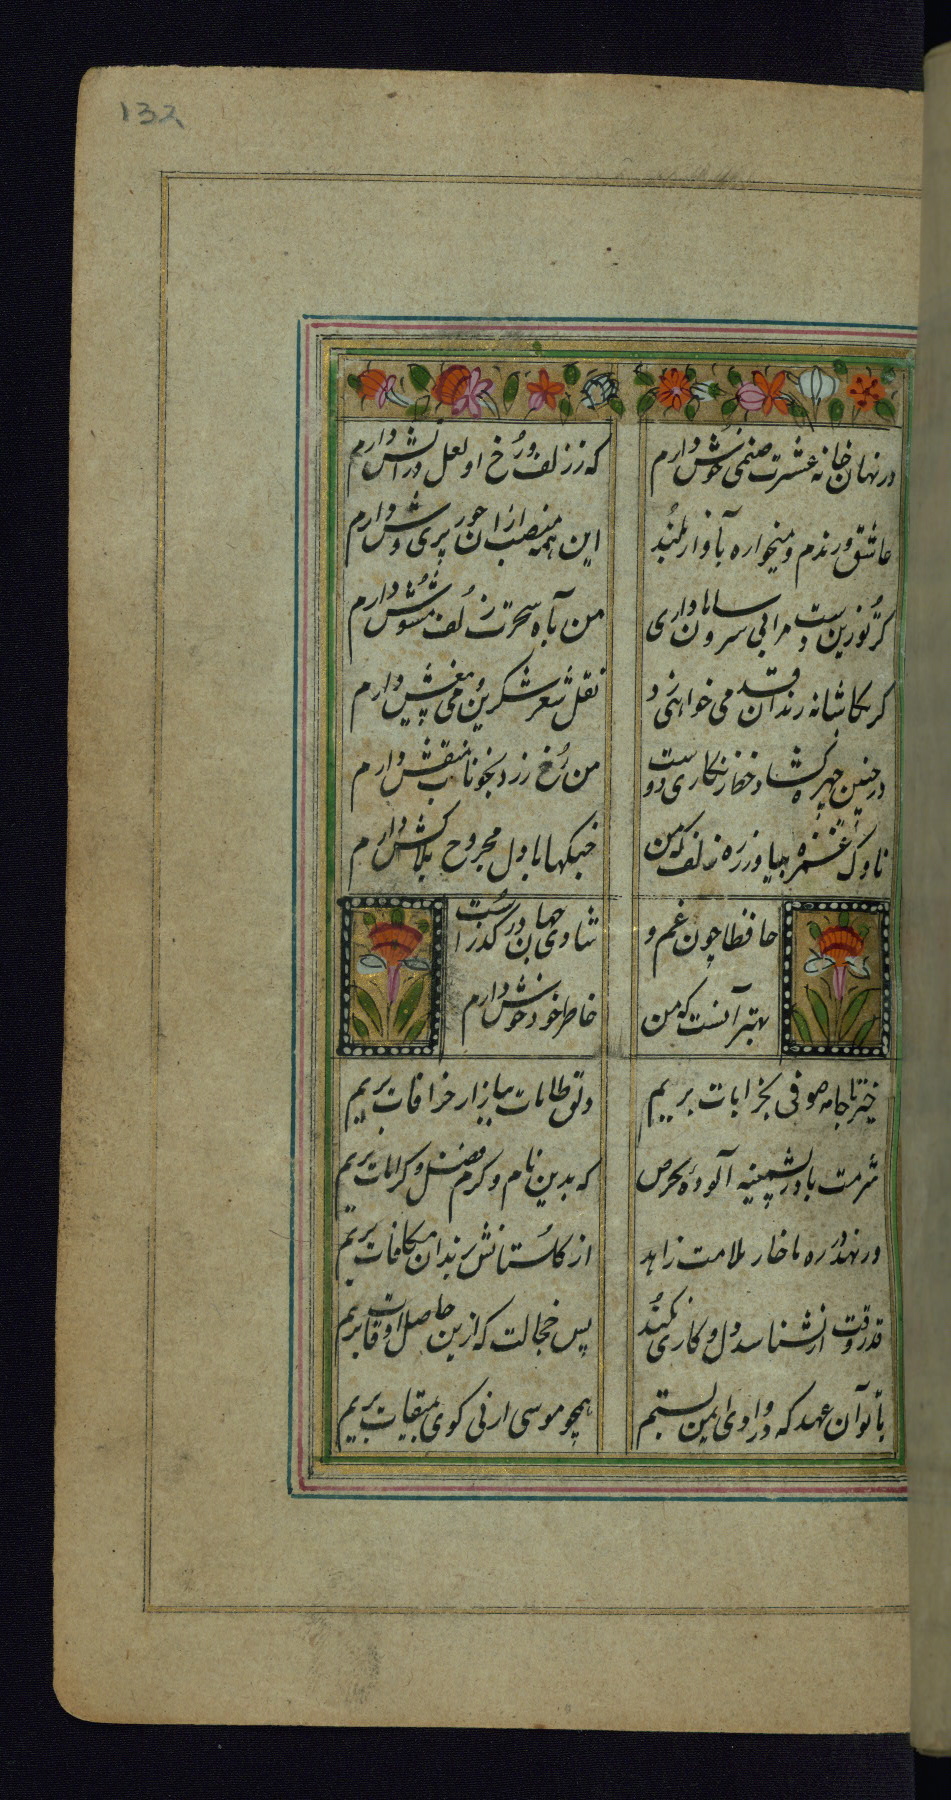 132
در نهان خانه عشرت صنمی خوش دارم که زر زلف و رخ او لعل در آتش دارم
عاشق و رندم و میخواره بآواز بلند این همه منصب از ان حور پری وش دارم
گر تو زین دست مرا بی سر و سامان داری من بآه سحرت زلف مشوش دارم
گر بکاشانه رندان قدمی خواهی زد نقل شعر شکرین و می بیغش دارم
در چنین چهره گشاد خط زنگاری دوست من رخ زرد بخوناب منقش دارم
ناوک غمزه بیاور زره زلف که من جنکها با دل مجروح بلاکش دارم
حافظا چون غم و شادی جهان در گذرست
بهتر آنست که من خاطر خود خوش دارم
خیز تا جامه صوفی بخرابات بریم دلق طامات ببازار خرافات بریم
شرمت باد ز پشمینه آلوده بحرص که بدین نام و کرم فضل و کرامات بریم
ور نهد در ره ما خار ملامت زاهد از گلستانش بزندان مکافات بریم
قدر وقت ار نشناسد دل و کاری نکند پس خجالت که ازین حاصل اوقات بریم
با تو آن عهد که در وادی ایمن بستیم همچو موسی ارنی گوی بمیقات بریم